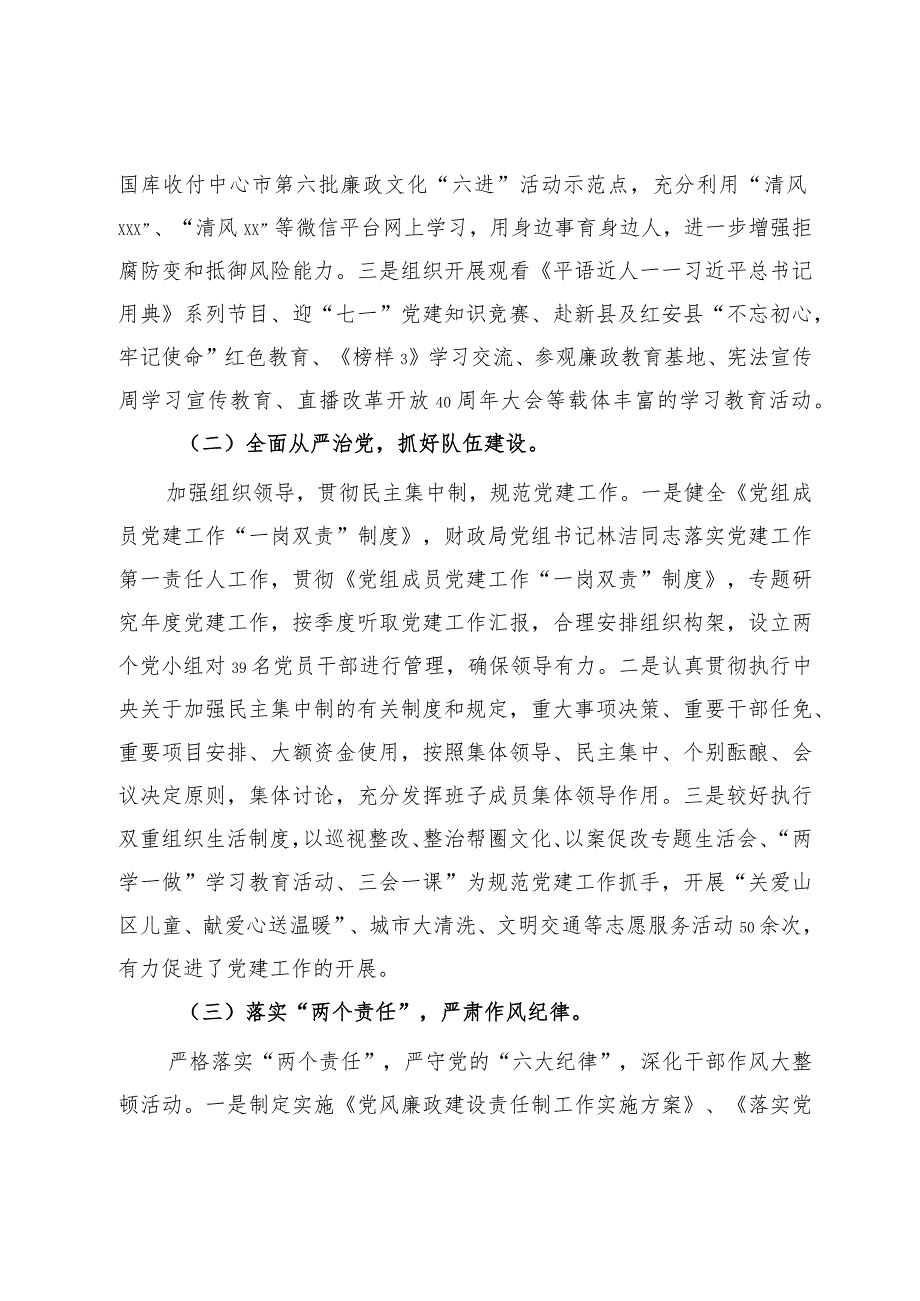 国库收付中心市第六批廉政文化“六进”活动示范点，充分利用“清风
xxx”、“清风 xx”等微信平台网上学习，用身边事育身边人，进一步增强拒
腐防变和抵御风险能力。三是组织开展观看《平语近人一一习近平总书记
用典》系列节目、迎“七一”党建知识竞赛、赴新县及红安县“不忘初心，
牢记使命”红色教育、《榜样 3》学习交流、参观廉政教育基地、宪法宣传
周学习宣传教育、直播改革开放 40 周年大会等载体丰富的学习教育活动。
（二）全面从严治党，抓好队伍建设。
加强组织领导，贯彻民主集中制，规范党建工作。一是健全《党组成
员党建工作“一岗双责”制度》，财政局党组书记林洁同志落实党建工作
第一责任人工作，贯彻《党组成员党建工作“一岗双责”制度》，专题研
究年度党建工作，按季度听取党建工作汇报，合理安排组织构架，设立两
个党小组对 39 名党员干部进行管理，确保领导有力。二是认真贯彻执行中
央关于加强民主集中制的有关制度和规定，重大事项决策、重要干部任免、
重要项目安排、大额资金使用，按照集体领导、民主集中、个别酝酿、会
议决定原则，集体讨论，充分发挥班子成员集体领导作用。三是较好执行
双重组织生活制度，以巡视整改、整治帮圈文化、以案促改专题生活会、“两
学一做”学习教育活动、三会一课”为规范党建工作抓手，开展“关爱山
区儿童、献爱心送温暖”、城市大清洗、文明交通等志愿服务活动 50 余次，
有力促进了党建工作的开展。
（三）落实“两个责任”，严肃作风纪律。
严格落实“两个责任”，严守党的“六大纪律”，深化干部作风大整
顿活动。一是制定实施《党风廉政建设责任制工作实施方案》、《落实党